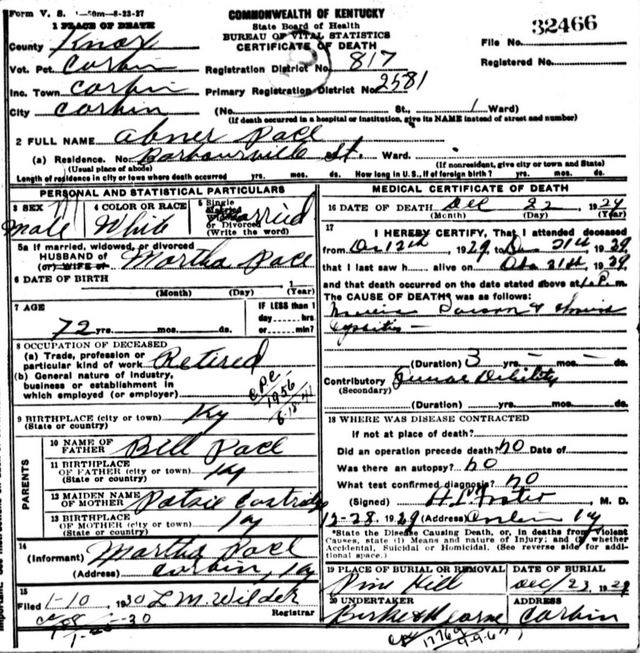 Form V. S. 1-50m-8-23-27
COMMONWEALTH OF KENTUCKY
State Board of Health
BUREAU OF VITAL STATISTICS
CERTIFICATE OF DEATH
32466
1 PLACE OF DEATH
County Knox
File No.
Vot. Pct. Corbin
Registration District No. 817
Registered No.
Inc. Town Corbin
Primary Registration District No. 2581
City Corbin (No. St., 1 Ward)
(If death occurred in a hospital or institution, give its NAME instead of street and number)
2 FULL NAME Abner Pace
(a) Residence. No. Barbourville St. Ward.
(Usual place of abode) (If nonresident, give city or town and State)
Length of residence in city or town where death occurred yrs. mos. ds. How long in U. S., if of foreign birth? yrs. mos. ds.
PERSONAL AND STATISTICAL PARTICULARS
3 SEX Male
4 COLOR OR RACE White
5 Single Married Widowed or Divorced (Write the word) Married
5a If married, widowed, or divorced
HUSBAND OF Martha Pace
(or) WIFE OF
6 DATE OF BIRTH
(Month) (Day) (Year)
7 AGE 72 yrs. mos. ds.
IF LESS than 1 day hrs. or min.?
8 OCCUPATION OF DECEASED
(a) Trade, profession or particular kind of work Retired
(b) General nature of industry, business or establishment in which employed (or employer)
9 BIRTHPLACE (city or town) Ky
(State or country)
PARENTS
10 NAME OF FATHER Bill Pace
11 BIRTHPLACE OF FATHER (city or town) Ky
(State or country)
12 MAIDEN NAME OF MOTHER Patsie
13 BIRTHPLACE OF MOTHER (city or town) Ky
(State or country)
14
(Informant) Martha Pace
(Address) Corbin, Ky
15
Filed 1-10, 1930 L M Wilder
Registrar
MEDICAL CERTIFICATE OF DEATH
16 DATE OF DEATH Dec 22, 1929
(Month) (Day) (Year)
17
I HEREBY CERTIFY, That I attended deceased
from 12th, 1929, to 21th, 1929,
that I last saw h alive on 21th, 1929,
and that death occurred on the date stated above at 1 P. m.
The CAUSE OF DEATH was as follows:
(Duration) 3 yrs. mos. ds.
Contributory Debility
(Secondary)
(Duration) yrs. mos. ds.
18 WHERE WAS DISEASE CONTRACTED
If not at place of death?
Did an operation precede death? No Date of
Was there an autopsy? No
What test confirmed diagnosis? No
(Signed) M. D.
12-28, 1929 (Address) Corbin Ky
*State the Disease Causing Death, or, in deaths from Violent Causes, state (1) Means and nature of Injury; and (2) whether Accidental, Suicidal or Homicidal. (See reverse side for additional space.)
19 PLACE OF BURIAL OR REMOVAL Pine Hill
DATE OF BURIAL Dec 23, 1929
20 UNDERTAKER
ADDRESS Corbin